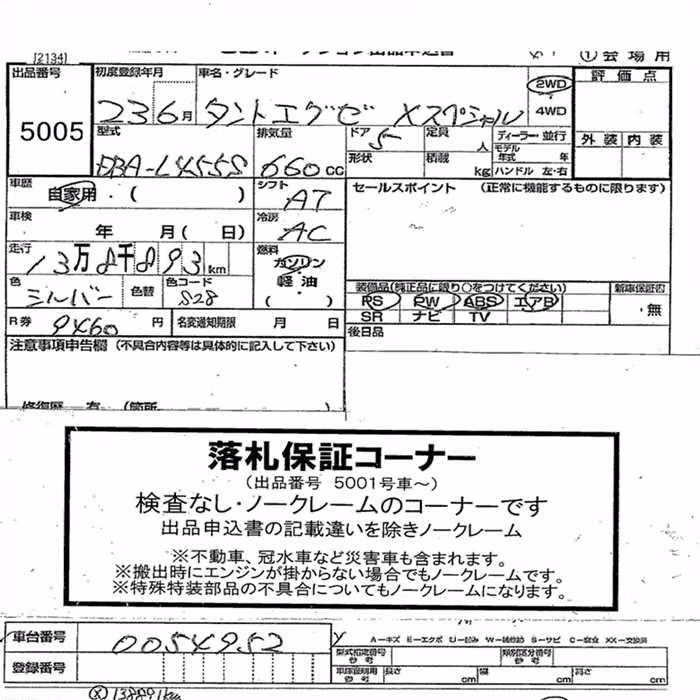 [2134]
①会場用
出品番号 5005
初度登録年月 23 6月
車名・グレード タントエグゼ Xスペシャル
2WD
4WD
評価点
外装 内装
型式 DBA-L455S
排気量 660cc
ドア 5
形状
定員 人
積載 kg
ディーラー・並行
モデル年式 年
ハンドル 左・右
車歴 自家用・( )
シフト AT
セールスポイント (正常に機能するものに限ります)
車検 年 月( 日)
冷房 AC
走行 13万8千893km
燃料 ガソリン
軽油
( )
色 シルバー
色替
色コード S28
装備品(純正品に限り○をつけてください)
PS PW ABS エアB
SR ナビ TV
新車保証書
・無
R券 9460円
名変通知期限 月 日
後日品
注意事項申告欄 (不具合内容等は具体的に記入して下さい)
修復歴 有 (箇所
落札保証コーナー
(出品番号 5001号車~)
検査なし・ノークレームのコーナーです
出品申込書の記載違いを除きノークレーム
※不動車、冠水車など災害車も含まれます。
※搬出時にエンジンが掛からない場合でもノークレームです。
※特殊特装部品の不具合についてもノークレームになります。
車台番号 0054952
A-キズ E-エクボ U-凹み W-補修跡 S-サビ C-腐食 XX-交換済
型式指定番号 参考
類別区分番号 参考
登録番号
車検証明用 参考
長さ cm 幅 cm 高さ cm